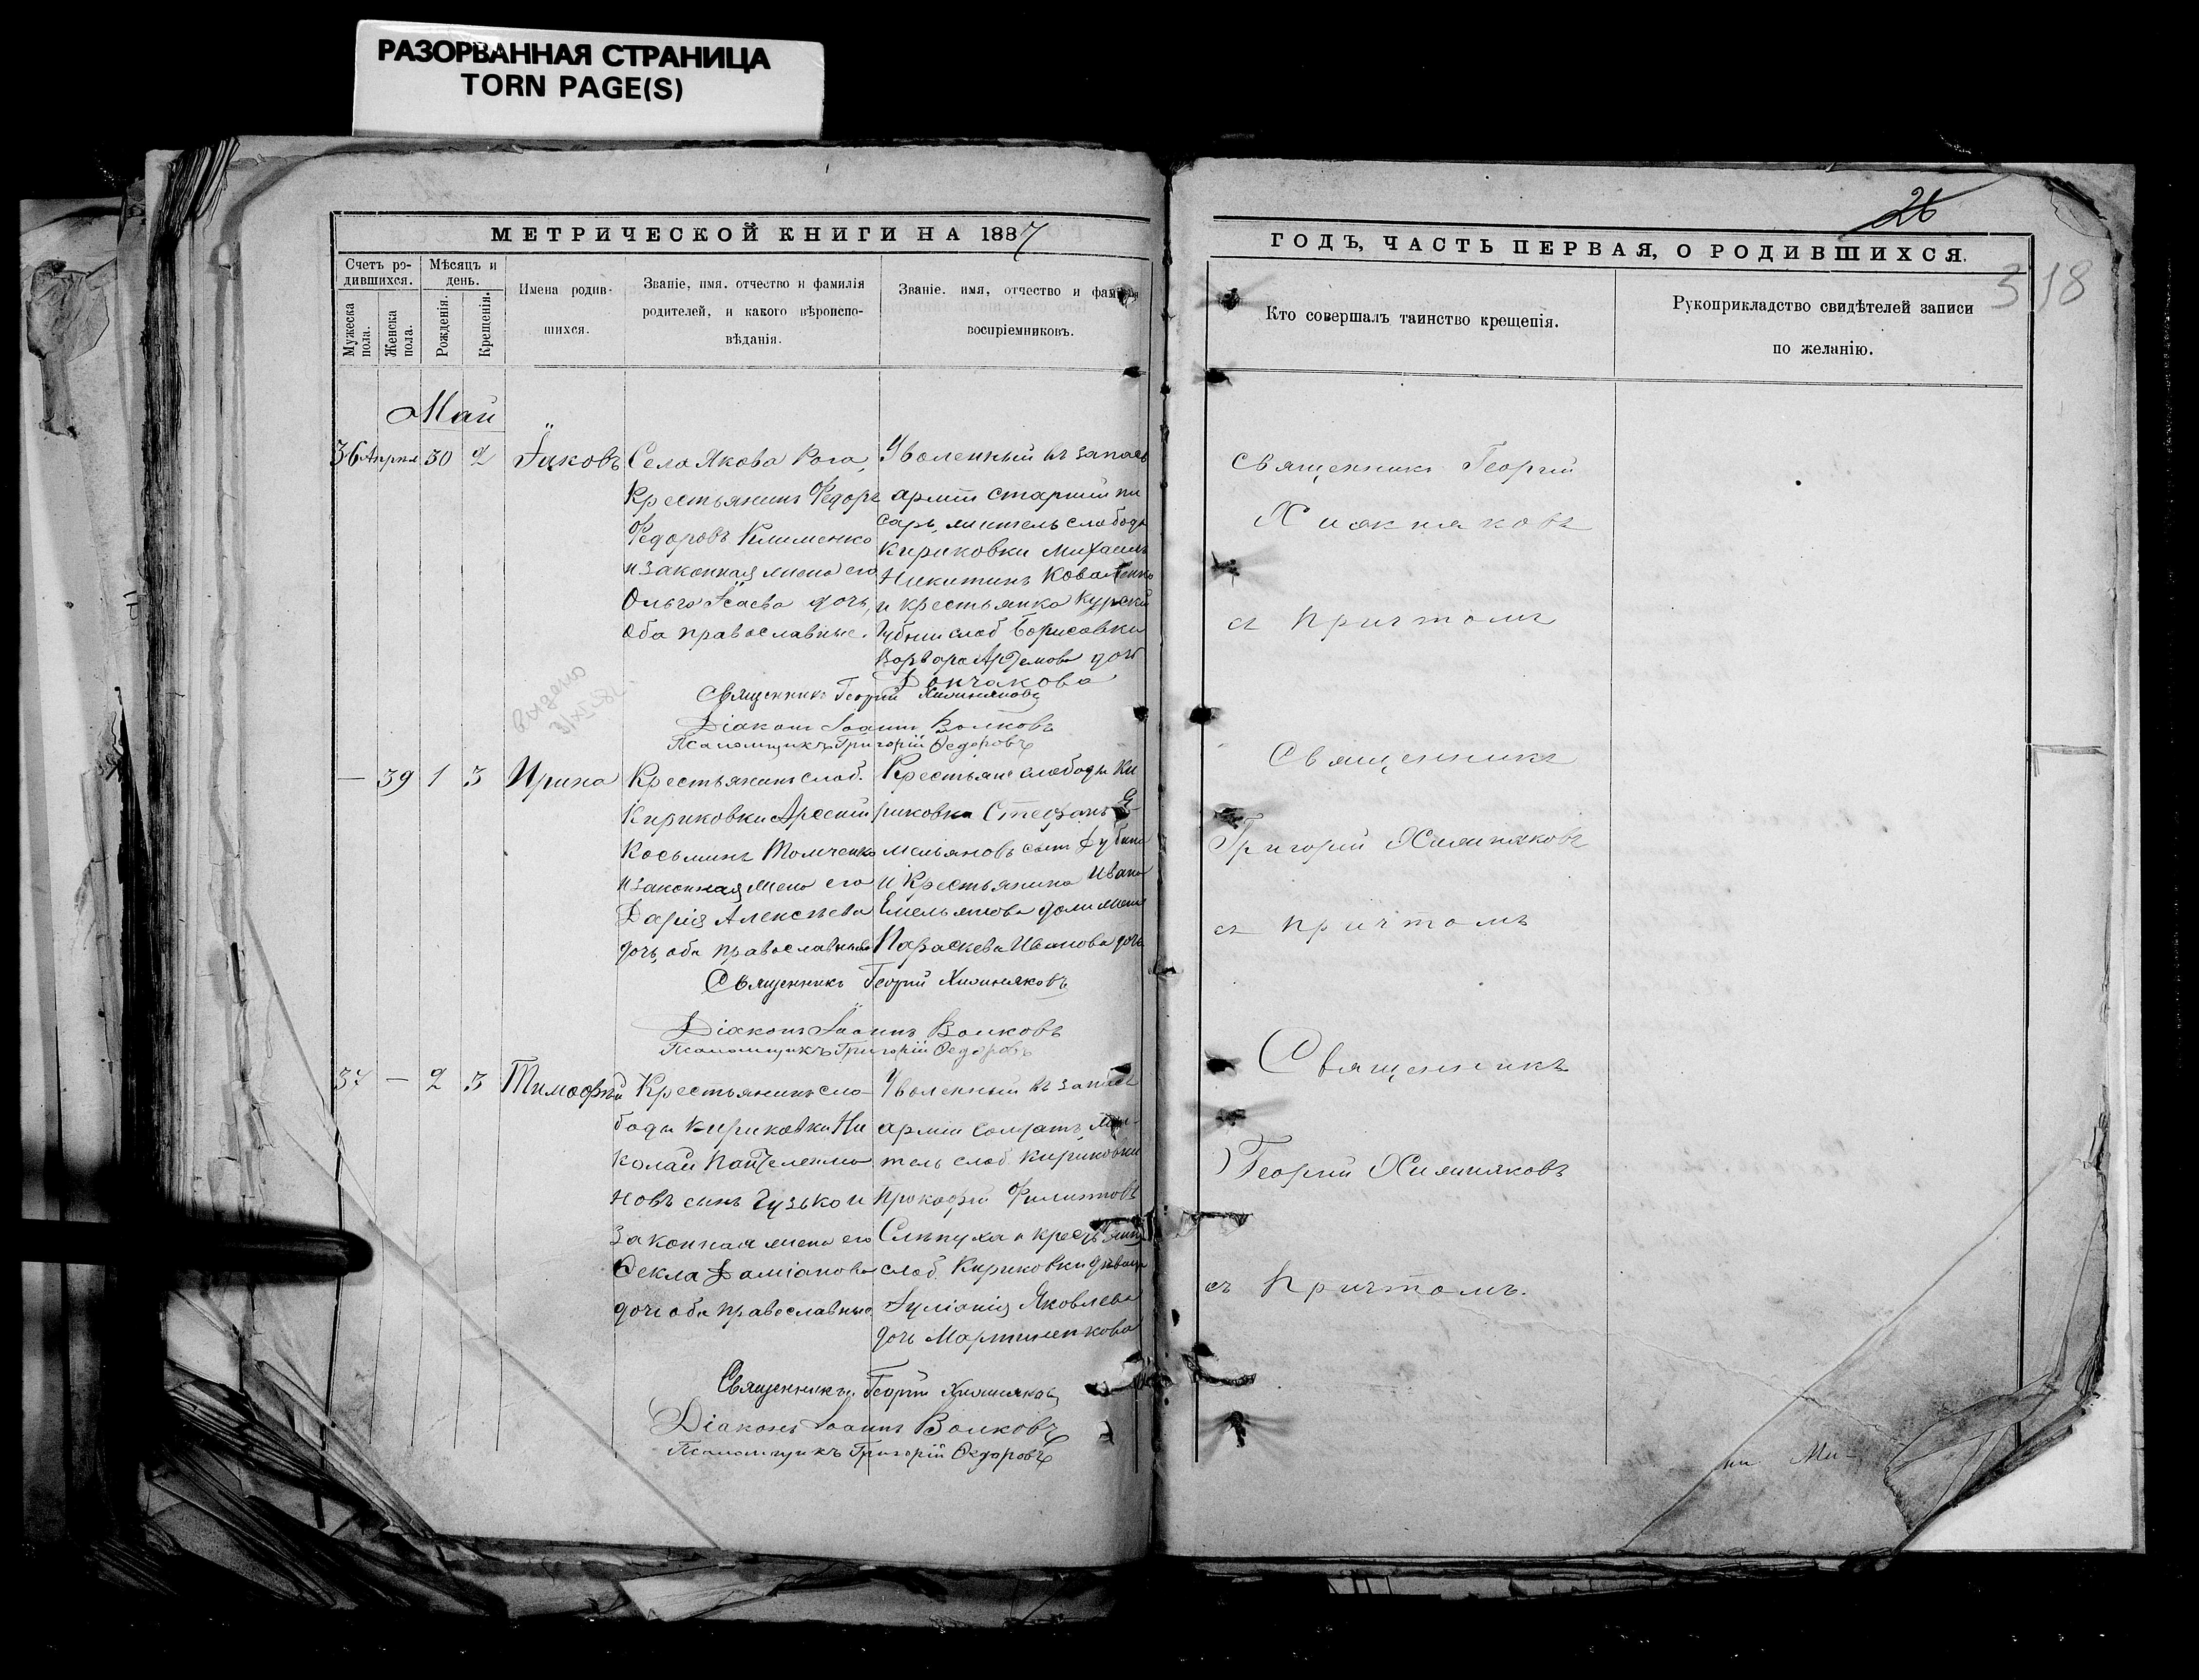 РАЗОРВАННАЯ СТРАНИЦА
TORN PAGE(S)
МЕТРИЧЕСКОЙ КНИГИ НА 1887
Счетъ ро-
дившихся.
Мужеска пола.
Женска пола.
Мѣсяцъ и
день.
Рожденія.
Крещенія.
Имена родив-
шихся.
Званіе, имя, отчество и фамилія
родителей, и какого вѣроиспо-
вѣданія.
Званіе, имя, отчество и фамилія
воспріемниковъ.
Май
36 Апреля 30 2 Іаковъ
Села Якова Рога,
Крестьянинъ Ѳедоръ
Ѳедоровъ Клименко
и законная жена его
Ольга Исаева дочь,
оба православные.
Уволенный въ запасъ
арміи старшій пи
сарь, житель слободы
Кириковки Михаилъ
Никитинъ Коваленко
и крестьянка Курской
Губніи слоб Борисовки
Варвара Артемова дочь
Священникъ Георгій Химиняковъ
Діаконъ Іоаннъ Волковъ
Псаломщикъ Григорій Ѳедоровъ
выдано
— 39 1 3 Ирина
Крестьянинъ слоб.
Кириковки Арсеній
Косьминъ Толченко
и законная жена его
Дарія Алексѣева
дочь, оба православные
Крестьяне слободы Ки
риковки Стефанъ Е
мельяновъ сынъ
и Крестьянина Ивана
Емельянова жена
Параскева Иванова дочь
Священникъ Георгій Химиняковъ
Діаконъ Іоаннъ Волковъ
Псаломщикъ Григорій Ѳедоровъ
37 — 2 3 Тимофѣй
Крестьянинъ сло-
боды Кириковки Ни
колай Пантелеимо
новъ сынъ Гузько и
законная жена его
Ѳекла Даміанова
дочь оба православные
Уволенный въ запасъ
арміи Солдатъ, жи-
тель слоб. Кириковки
Прокофій Филиповъ
Слѣпуха и крестьянка
слоб. Кириковки дѣвица
Іуліанія Яковлева
дочь Мартиненкова
Священникъ Георгій Химиняковъ
Діаконъ Іоаннъ Волковъ
Псаломщикъ Григорій Ѳедоровъ
26
ГОДЪ, ЧАСТЬ ПЕРВАЯ, О РОДИВШИХСЯ.
318
Кто совершалъ таинство крещенія.
Рукоприкладство свидѣтелей записи
по желанію.
Священникъ Георгій
Химиняковъ
съ причтомъ
Священникъ
Григорій Химиняковъ
съ причтомъ
Священникъ
Георгій Химиняковъ
съ причтомъ.